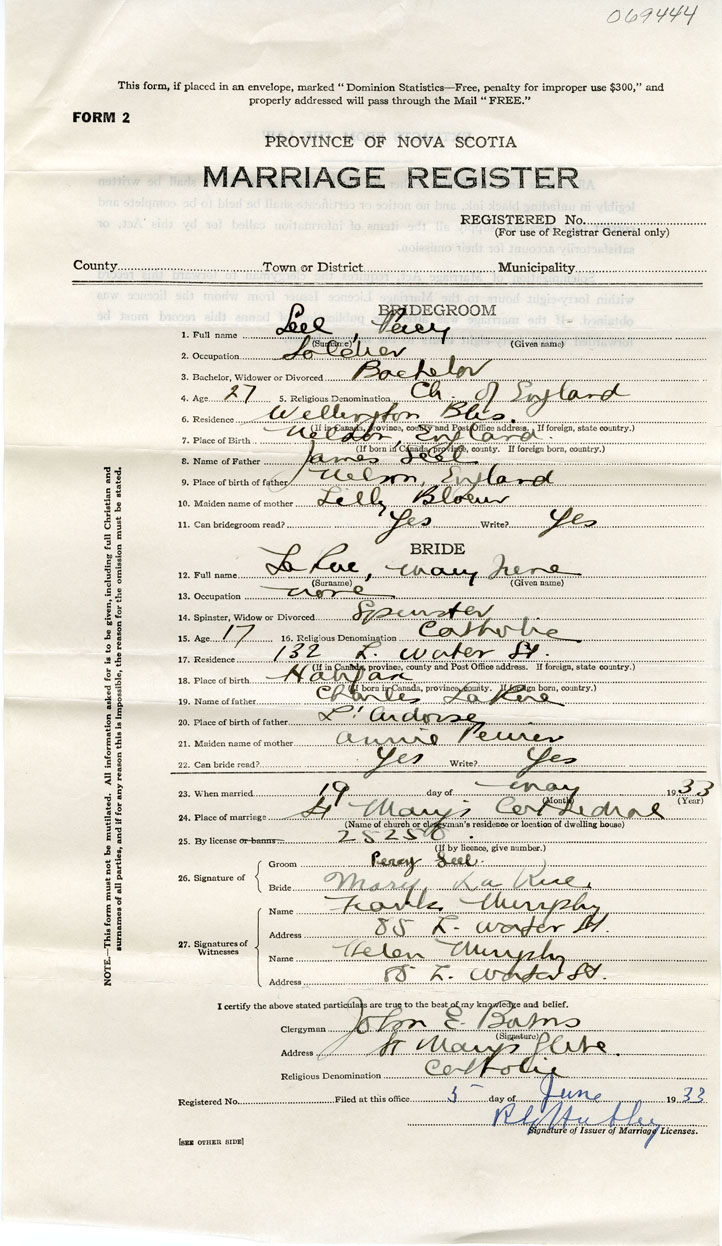 069444
This form, if placed in an envelope, marked "Dominion Statistics—Free, penalty for improper use $300," and
properly addressed will pass through the Mail "FREE."
FORM 2
PROVINCE OF NOVA SCOTIA
MARRIAGE REGISTER
REGISTERED No.
(For use of Registrar General only)
County Town or District Municipality
BRIDEGROOM
1. Full name Seel, Percy
(Surname) (Given name)
2. Occupation Soldier
3. Bachelor, Widower or Divorced Bachelor
4. Age 27 5. Religious Denomination Ch. of England
6. Residence Wellington Bks.
(If in Canada, province, county and Post Office address. If foreign, state country.)
7. Place of Birth Nelson, England.
(If born in Canada, province, county. If foreign born, country.)
8. Name of Father James Seel
9. Place of birth of father Nelson, England
10. Maiden name of mother Lilly
11. Can bridegroom read? Yes Write? Yes
BRIDE
12. Full name La Rue, Mary Irene
(Surname) (Given name)
13. Occupation none
14. Spinster, Widow or Divorced Spinster
15. Age 17 16. Religious Denomination Catholic
17. Residence 132 L. Water St.
(If in Canada, province, county and Post Office address. If foreign, state country.)
18. Place of birth Halifax
(If born in Canada, province, county. If foreign born, country.)
19. Name of father Charles La Rue
20. Place of birth of father L'Ardoise
21. Maiden name of mother Annie
22. Can bride read? Yes Write? Yes
23. When married 19 day of May 1933
(Month) (Year)
24. Place of marriage St Mary's Cathedral
(Name of church or clergyman's residence or location of dwelling house)
25. By license or banns 25256.
(If by licence, give number.)
26. Signature of
Groom Percy Seel.
Bride Mary La Rue.
27. Signatures of Witnesses
Name Frank Murphy
Address 85 L. Water St.
Name Helen Murphy
Address 85 L. Water St.
I certify the above stated particulars are true to the best of my knowledge and belief.
Clergyman John E. Burns
(Signature)
Address St Marys Glebe.
Religious Denomination Catholic
Registered No. Filed at this office 5 day of June 1933
Signature of Issuer of Marriage Licenses.
[SEE OTHER SIDE]
NOTE.—This form must not be mutilated. All information asked for is to be given, including full Christian and
surnames of all parties, and if for any reason this is impossible, the reason for the omission must be stated.